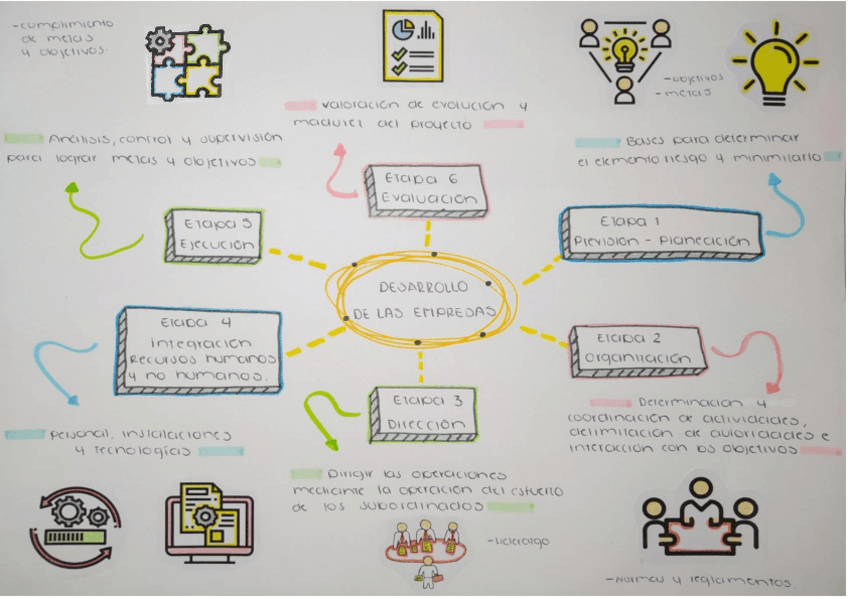 DESARROLLO
DE LAS EMPRESAS
Etapa 1
Prevision - Planeación
Bases para determinar
el elemento riesgo y minimitarlo
-objetivos
-metas
Etapa 2
Organización
Determinacion y
coordinación de actividades,
delimitación de autoridades e
interacción con los objetivos
-Normas y reglamentos.
Etapa 3
Dirección
Dirigir las operaciones
mediante la operación del esfuerzo
de los subordinados
-Liderazgo
Etapa 4
Integración
Recursos humanos
y no humanos.
Personal, instalaciones
y tecnologías
Etapa 5
Ejecución
Análisis, control y supervisión
para lograr metas y objetivos
-cumplimiento
de metas
y objetivos.
Etapa 6
Evaluación
Valoración de evolución y
madurez del proyecto